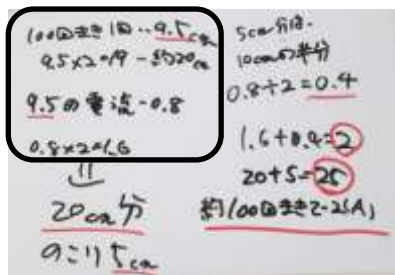 100回まき1回‥9.5cm
9.5×2=19-約20cm
9.5の電流-0.8
0.8×2=1.6
20cm分
のこり5cm
5cm分は、
10cmの半分
0.8÷2=0.4
1.6+0.4=2
20+5=25
約100回まきで-2